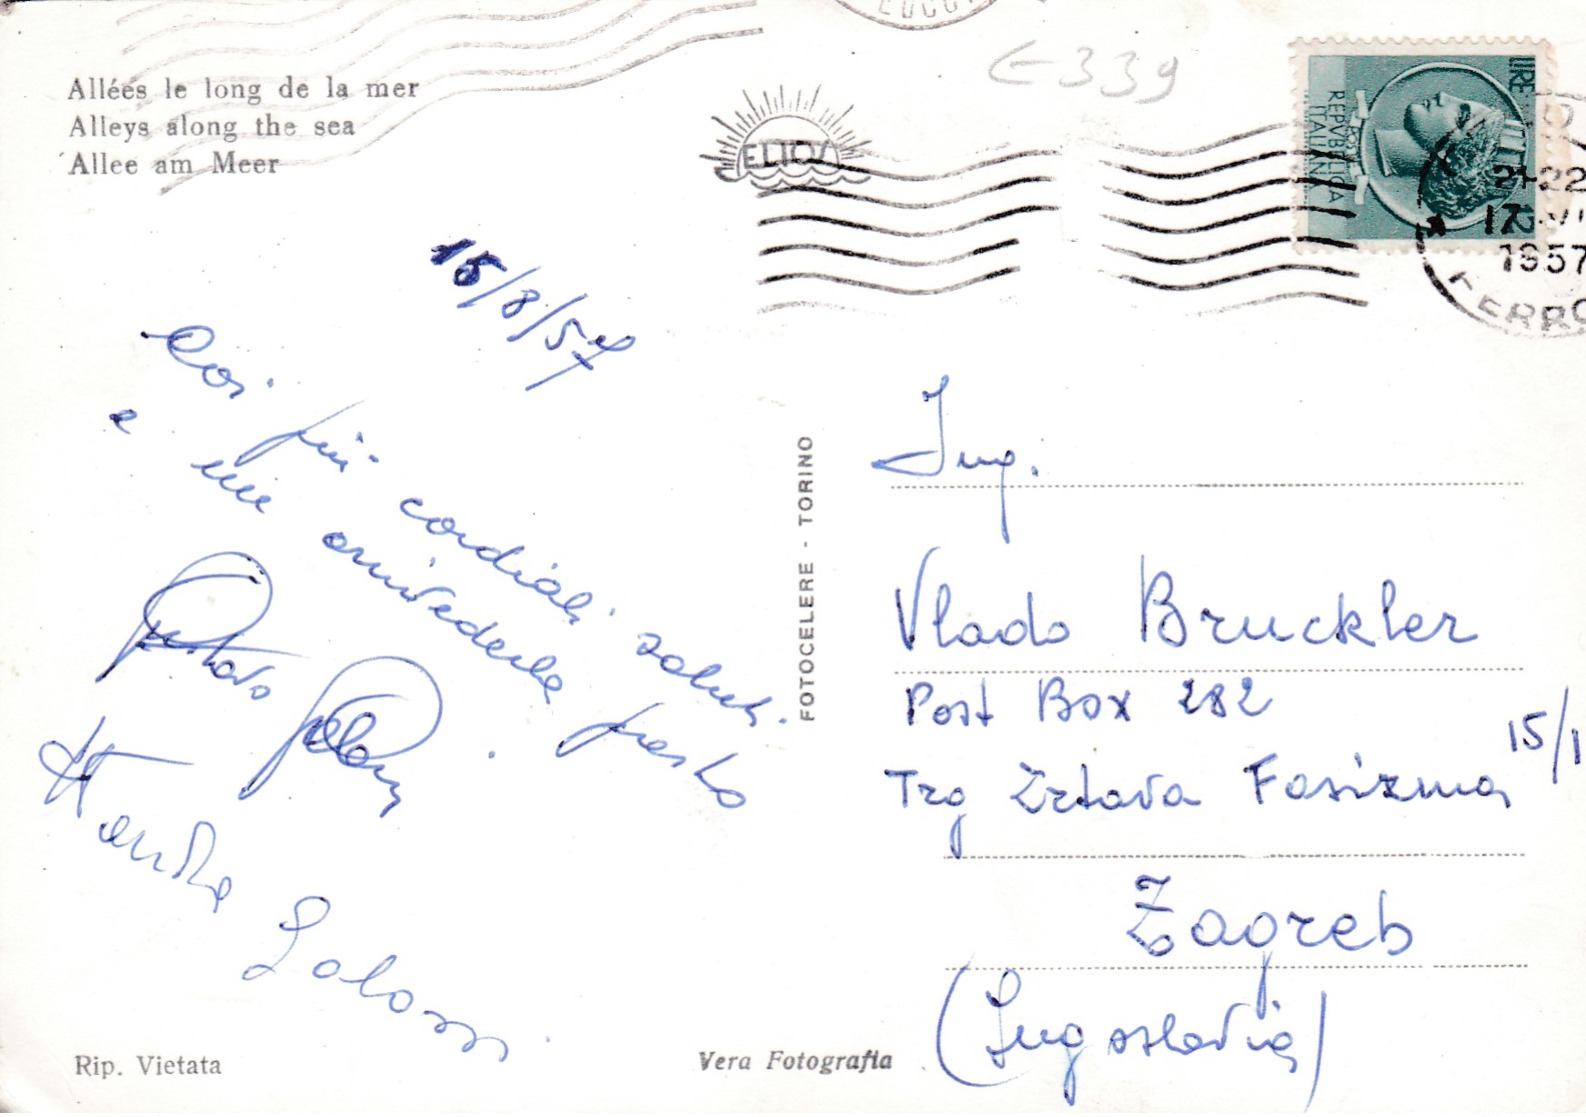 Allées le long de la mer
Alleys along the sea
Allee am Meer
ELIOS
€339
LIRE
REPVBBLICA
ITALIANA
POSTE
21-22
17
1957
FERRO
15/8/57
Coi più cordiali saluti
e un arrivederla presto
Gustavo
Rip. Vietata
FOTOCELERE - TORINO
Vera Fotografia
Ing.
Vlado Bruckler
Post Box 282
Trg Zrtava Fasizma 15/1
Zagreb
(Jugoslavia)